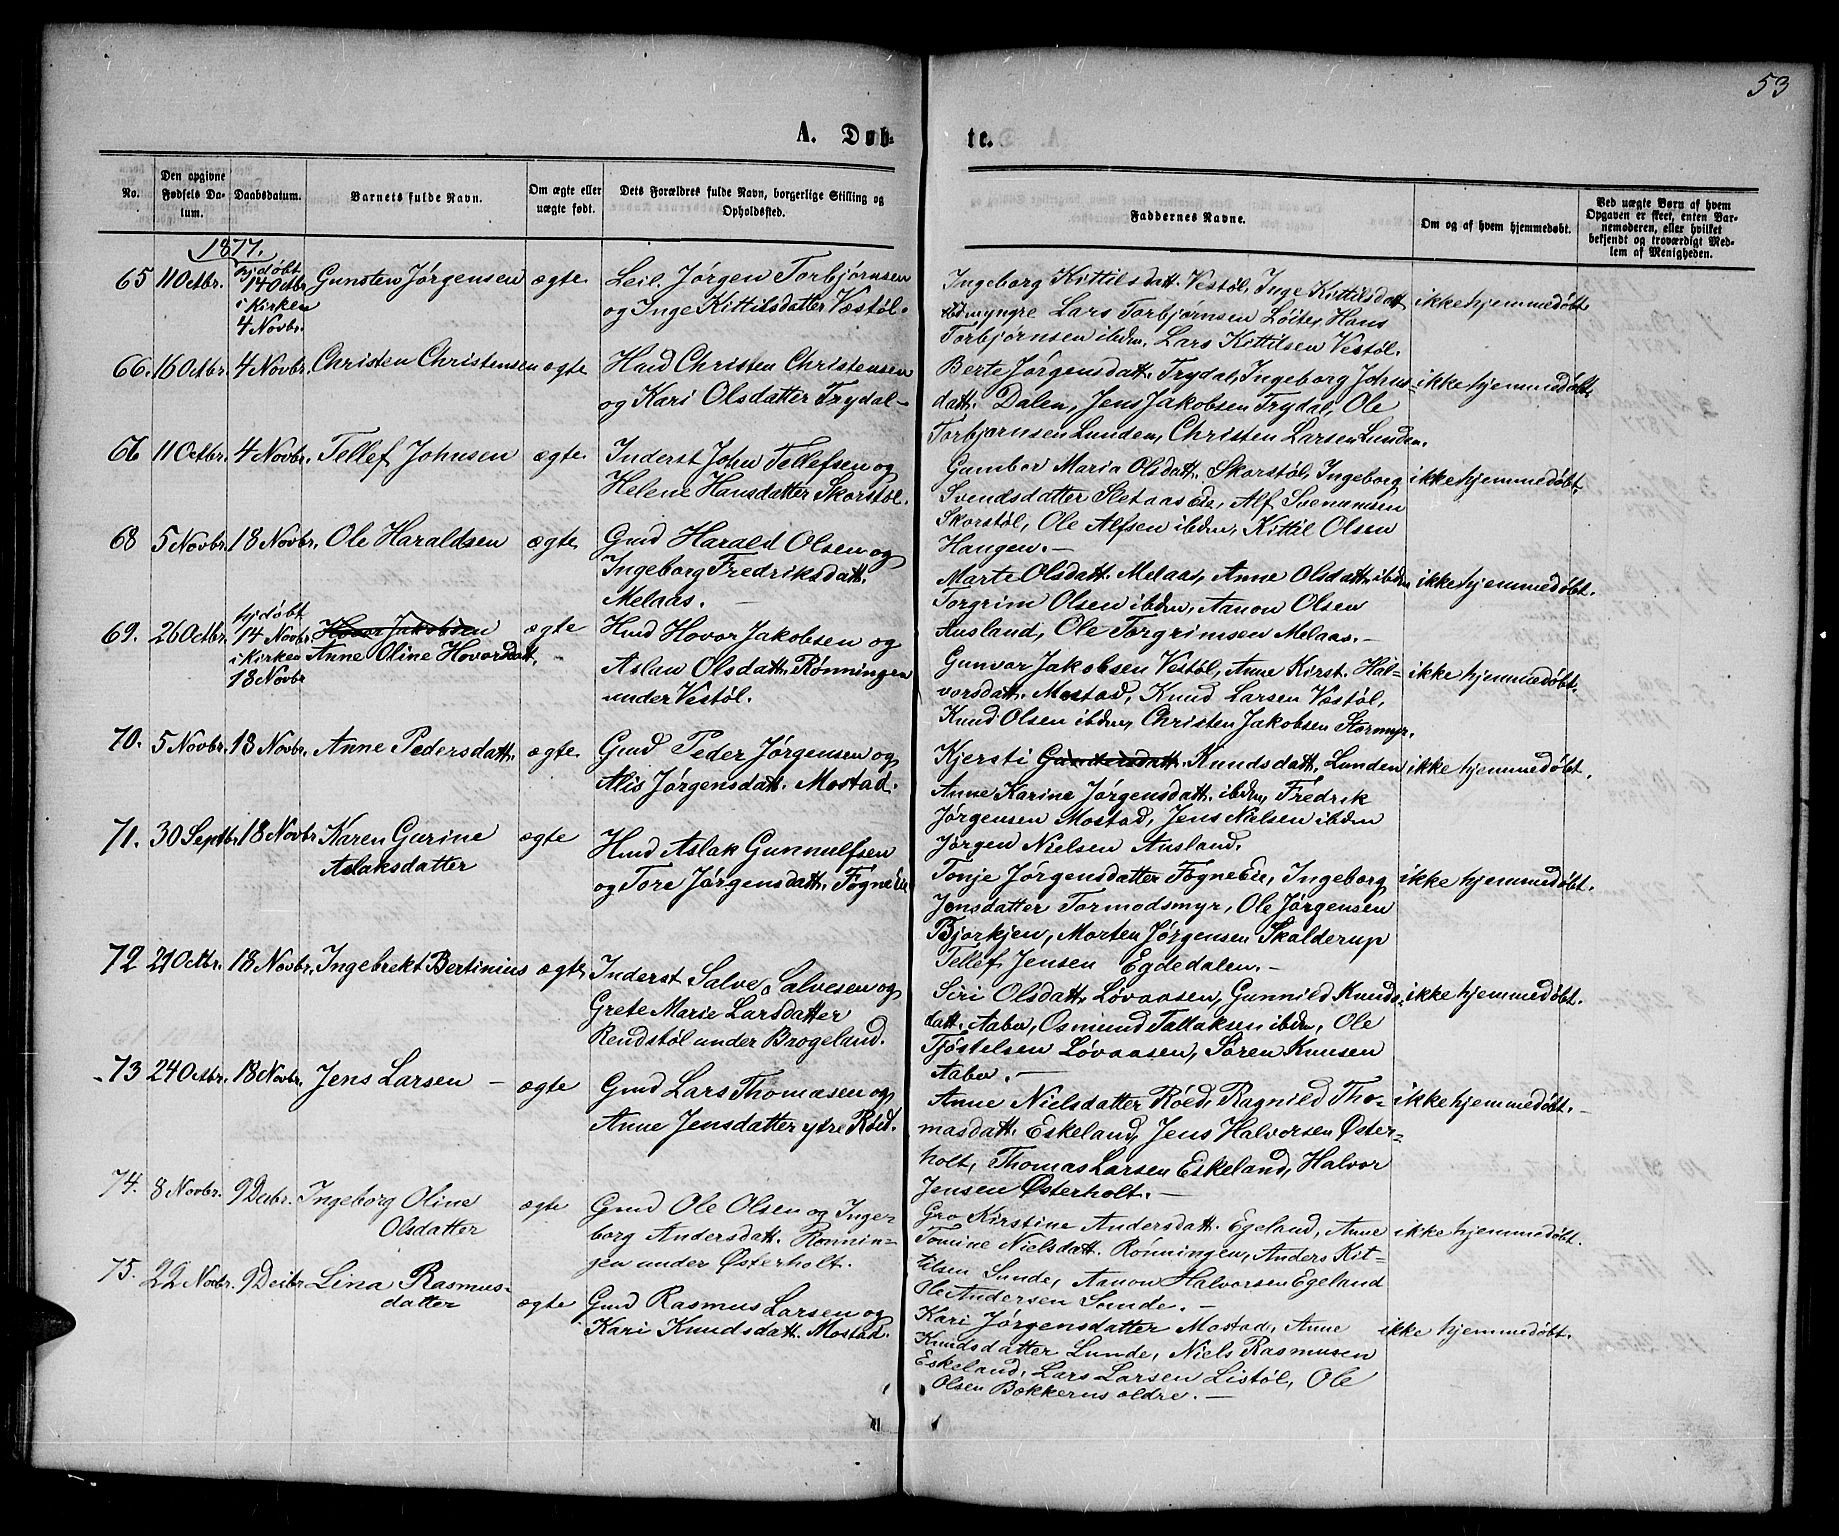 53
A. Døb-
te.
No.
Den opgivne Fødsels Da-tum.
Daabsdatum.
Barnets fulde Navn.
Om ægte eller uægte født.
Dets Forældres fulde Navn, borgerlige Stilling og Opholdssted.
Faddernes Navne.
Om og af hvem hjemmedøbt.
Ved uægte Børn af hvem Opgaven er skeet, enten Bar-nemoderen, eller hvilket bekjendt og troværdigt Med-lem af Menigheden.
1877.
65 11 Octbr. hjdøbt 14 Octbr. i Kirken 4 Novbr. Gunsten Jørgensen ægte
Leil. Jørgen Torbjørnsen
og Inge Kittilsdatter Vestøl.
Ingeborg Kittilsdatt. Vestøl, Inge Kittilsdatt
ibdm yngre Lars Torbjørnsen Løite, Hans
Torbjørnsen ibdm, Lars Kittilsen Vestøl.
ikke hjemmedøbt
66. 16 Octbr. 4 Novbr. Christen Christensen ægte
Huud Christen Christensen
og Kari Olsdatter Trydal -
Berte Jørgensdatt. Trydal, Ingeborg Johns-
datt. Dalen, Jens Jakobsen Trydal, Ole
Torbjørnsen Lunden, Christen Larsen Lunden.
ikke hjemmedøbt.
66 11 Octbr. 4 Novbr. Tellef Johnsen ægte
Inderst John Tellefsen og
Helene Hansdatter Skorstøl.
Gumbor Maria Olsdatt. Skorstøl, Ingeborg
Svendsdatter Sletaas Eie, Alf Svenumsen
Skorstøl, Ole Alfsen ibdm, Kittil Olsen
Haugen. -
ikke hjemmedøbt.
68 5 Novbr. 18 Novbr. Ole Haraldsen ægte
Gmd Harald Olsen og
Ingeborg Fredriksdatt.
Melaas. -
Marte Olsdatt. Melaas, Anne Olsdatt. ibdm
Torgrim Olsen ibdm, Aanon Olsen
Ausland, Ole Torgrimsen Melaas. -
ikke hjemmedøbt.
69. 26 Octbr. hjdøbt 14 Novbr. i Kirken 18 Novbr Hovor Jakobsen
Anne Oline Hovorsdatt. ægte
Hmd Hovor Jakobsen og
Aslau Olsdatt. Rønningen
under Vestøl.
Gunvor Jakobsen Vestøl, Anne Kirst. Hal-
vorsdatt. Mostad, Knud Larsen Vestøl,
Knud Olsen ibdm, Christen Jakobsen Stormyr.
ikke hjemmedøbt.
70. 5 Novbr. 18 Novbr. Anne Pedersdatt. ægte
Gmd Peder Jørgensen og
Alis Jørgensdatt. Mostad.
Kjersti Gundersdatt. Knudsdatt. Lunden
Anne Karine Jørgensdatt. ibdm, Fredrik
Jørgensen Mostad, Jens Nielsen ibdm
Jørgen Nielsen Ausland.
ikke hjemmedøbt.
71. 30 Septbr. 18 Novbr. Karen Gurine
Aslaksdatter ægte
Hmd Aslak Gunnulfsen
og Tore Jørgensdatt. Fogne Eie
Tonje Jørgensdatter Fogne Eie, Ingeborg
Jensdatter Tormodsmyr, Ole Jørgensen
Bjorkjen, Morten Jørgensen Skalderup
Tellef Jensen Egdedalen. -
ikke hjemmedøbt.
72 21 Octbr. 18 Novbr. Ingebrekt Bertinius ægte
Inderst Salve Salvesen og
Grete Marie Larsdatter
Rendstøl under Brogeland.
Siri Olsdatt. Løvaasen, Gunnild Knuds-
datt. Aabø, Osmund Tallaksen ibdm, Ole
Tjøstelsen Løvaasen, Søren Knusen
Aabø. -
ikke hjemmedøbt.
73 24 Octbr. 18 Novbr. Jens Larsen - ægte
Gmd Lars Thomasen og
Anne Jensdatter ytre Røed.
Anne Nielsdatter Røed, Ragnild Tho-
masdatt. Eskeland, Jens Halvorsen Øster-
holt, Thomas Larsen Eskeland, Halvor
Jensen Østerholt. -
ikke hjemmedøbt. -
74. 8 Novbr. 9 Decbr. Ingeborg Oline
Olsdatter ægte
Gmd Ole Olsen og Inge-
borg Andersdatt. Rønnin-
gen under Østerholt.
Gro Kirstine Andersdatt. Egeland, Anne
Tomine Nielsdatt. Rønningen, Anders Kit-
tilsen Sunde, Aanon Halvorsen Egeland
Ole Andersen Sunde. -
ikke hjemmedøbt.
75. 22 Novbr. 9 Decbr. Lina Rasmus-
datter ægte
Gmd Rasmus Larsen og
Kari Knudsdatt. Mostad.
Kari Jørgensdatter Mostad, Anne
Knudsdatter Lunde, Niels Rasmusen
Eskeland, Lars Larsen Listøl, Ole
Olsen Bokkerns oldre. -
ikke hjemmedøbt.